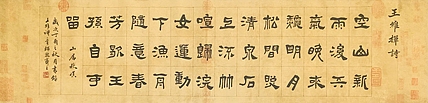 王維禪詩
空山新
雨後天
氣晚來
秋明月
松間照
清泉石
上流竹
喧歸浣
女蓮動
下漁舟
隨意春
芳歇王
孫自可
留
山居秋暝